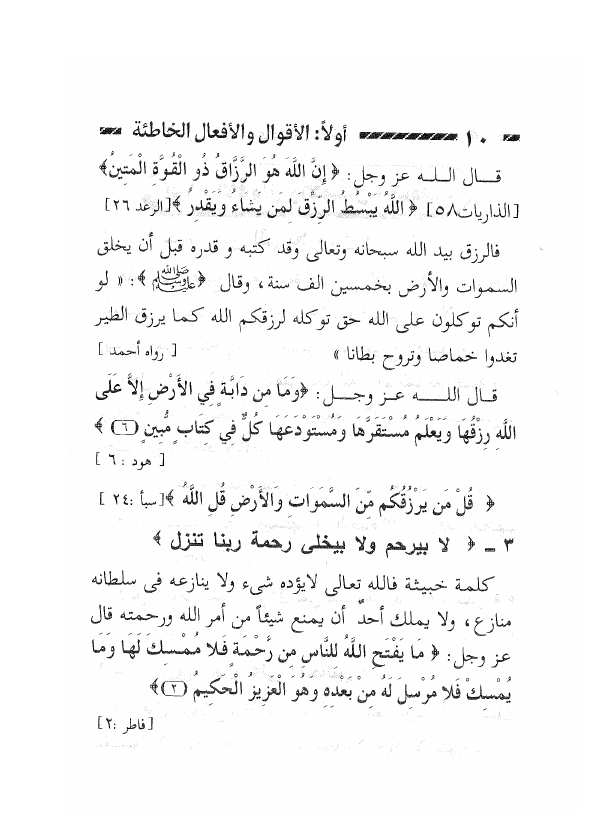 ١٠ أولاً: الأقوال والأفعال الخاطئة
قـــال اللـــه عز وجل: ﴿ إِنَّ اللَّهَ هُوَ الرَّزَّاقُ ذُو الْقُوَّةِ الْمَتِينُ﴾
[الذاريات٥٨] ﴿ اللَّهُ يَبْسُطُ الرِّزْقَ لِمَن يَشَاءُ وَيَقْدِرُ ﴾[الرعد ٢٦]
فالرزق بيد الله سبحانه وتعالى وقد كتبه و قدره قبل أن يخلق
السموات والأرض بخمسين الف سنة، وقال ﴿ﷺ﴾: « لو
أنكم توكلون على الله حق توكله لرزقكم الله كما يرزق الطير
تغدوا خماصا وتروح بطانا » [ رواه أحمد ]
قال اللـــه عـز وجـــل: ﴿وَمَا مِن دَابَّةٍ فِي الأَرْضِ إِلاَّ عَلَى
اللَّهِ رِزْقُهَا وَيَعْلَمُ مُسْتَقَرَّهَا وَمُسْتَوْدَعَهَا كُلٌّ فِي كِتَابٍ مُّبِينٍ (٦) ﴾
[ هود : ٦ ]
﴿ قُلْ مَن يَرْزُقُكُم مِّنَ السَّمَوَاتِ وَالأَرْضِ قُلِ اللَّهُ ﴾[سبأ :٢٤ ]
٣ ـ ﴿ لا بيرحم ولا بيخلى رحمة ربنا تنزل ﴾
كلمة خبيثة فالله تعالى لايؤده شىء ولا ينازعه فى سلطانه
منازع، ولا يملك أحدٌ أن يمنع شيئاً من أمر الله ورحمته قال
عز وجل: ﴿ مَا يَفْتَحِ اللَّهُ لِلنَّاسِ مِن رَّحْمَةٍ فَلا مُمْسِكَ لَهَا وَمَا
يُمْسِكْ فَلا مُرْسِلَ لَهُ مِنْ بَعْدِهِ وَهُوَ الْعَزِيزُ الْحَكِيمُ (٢)﴾
[فاطر :٢]